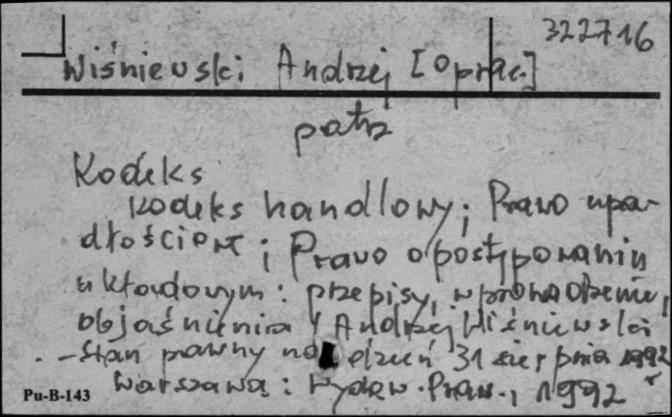 322716
Wiśniewski Andrzej [oprac.]
patrz
Kodeks
Kodeks handlowy; Prawo upa-
dłościowe; Prawo o postępowaniu
układowym: przepisy, wprowadzenie,
objaśnienia / Andrzej Wiśniewski
. - Stan prawny na dzień 31 sierpnia 1992 r
Warszawa: Wydaw. Praw., 1992
Pu-B-143